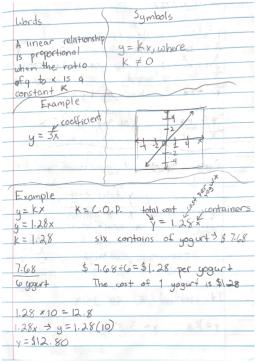 Words
Symbols
A linear relationship
is proportional
when the ratio
of y to x is a
constant K
y = Kx, where
K ≠ 0
Example
coefficient
y = 3x
Example
y = Kx
K = C.O.P.
total cost
containers
y = 1.28x
y = 1.28x
K = 1.28
six contains of yogurt → $ 7.68
7.68
6 yogurt
$ 7.68÷6 = $1.28 per yogurt
The cost of 1 yogurt is $1.28
1.28 × 10 = 12.8
1.28x → y = 1.28(10)
y = $12.80